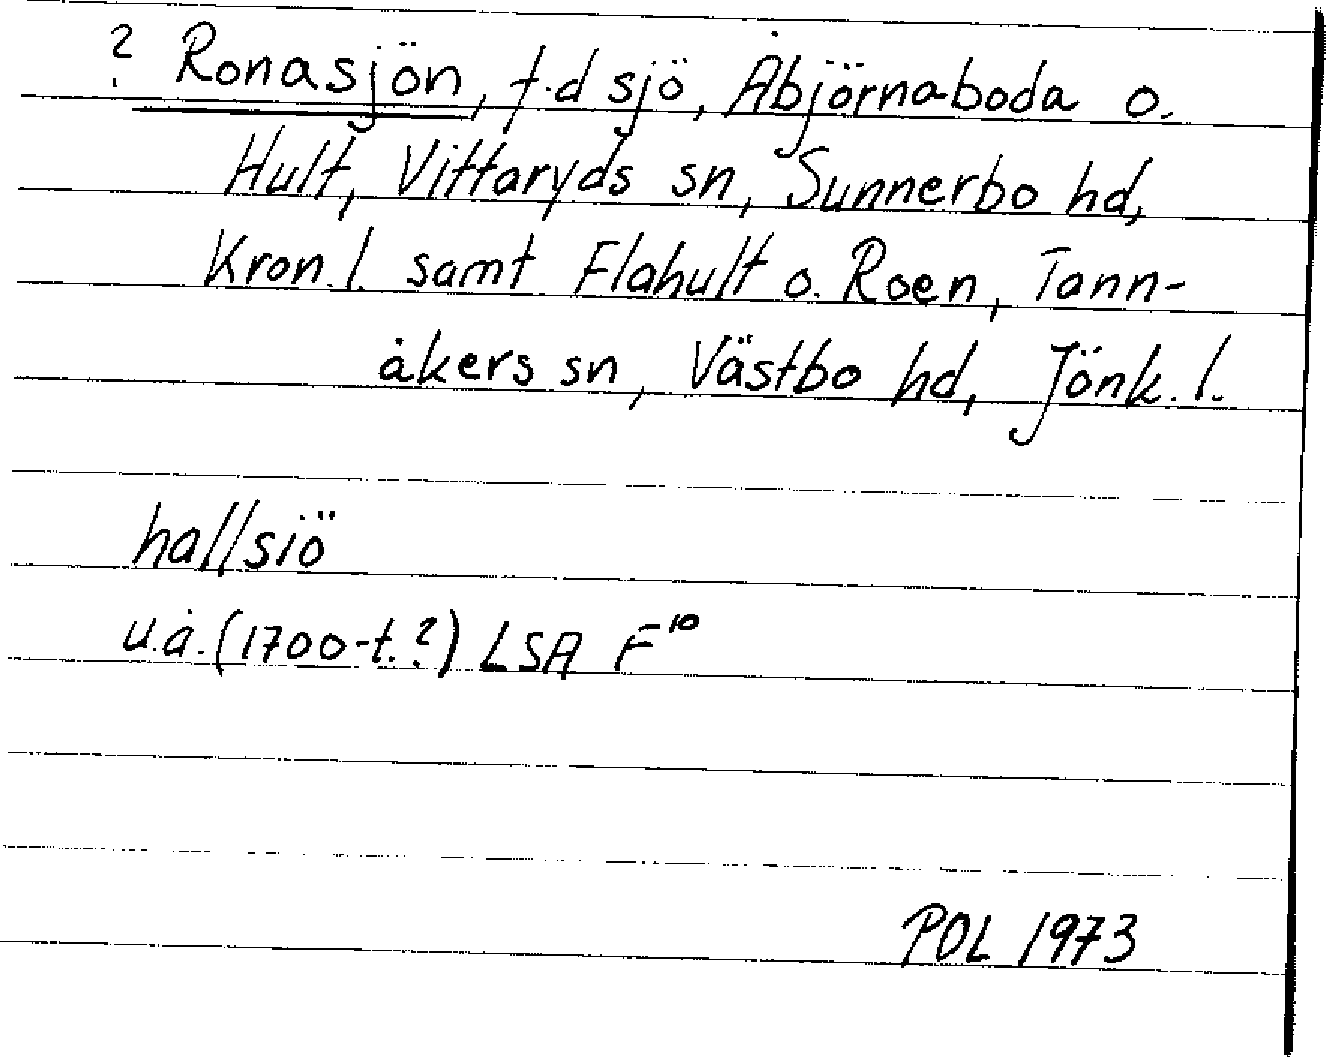 ? Ronasjön, f.d sjö, Åbjörnaboda o.
Hult, Vittaryds sn, Sunnerbo hd,
Kron. l. samt Flahult o. Roen, Tann-
åkers sn, Västbo hd, Jönk. l.
hallsiö
u.å. (1700-t.?) LSA F¹⁰
POL 1973